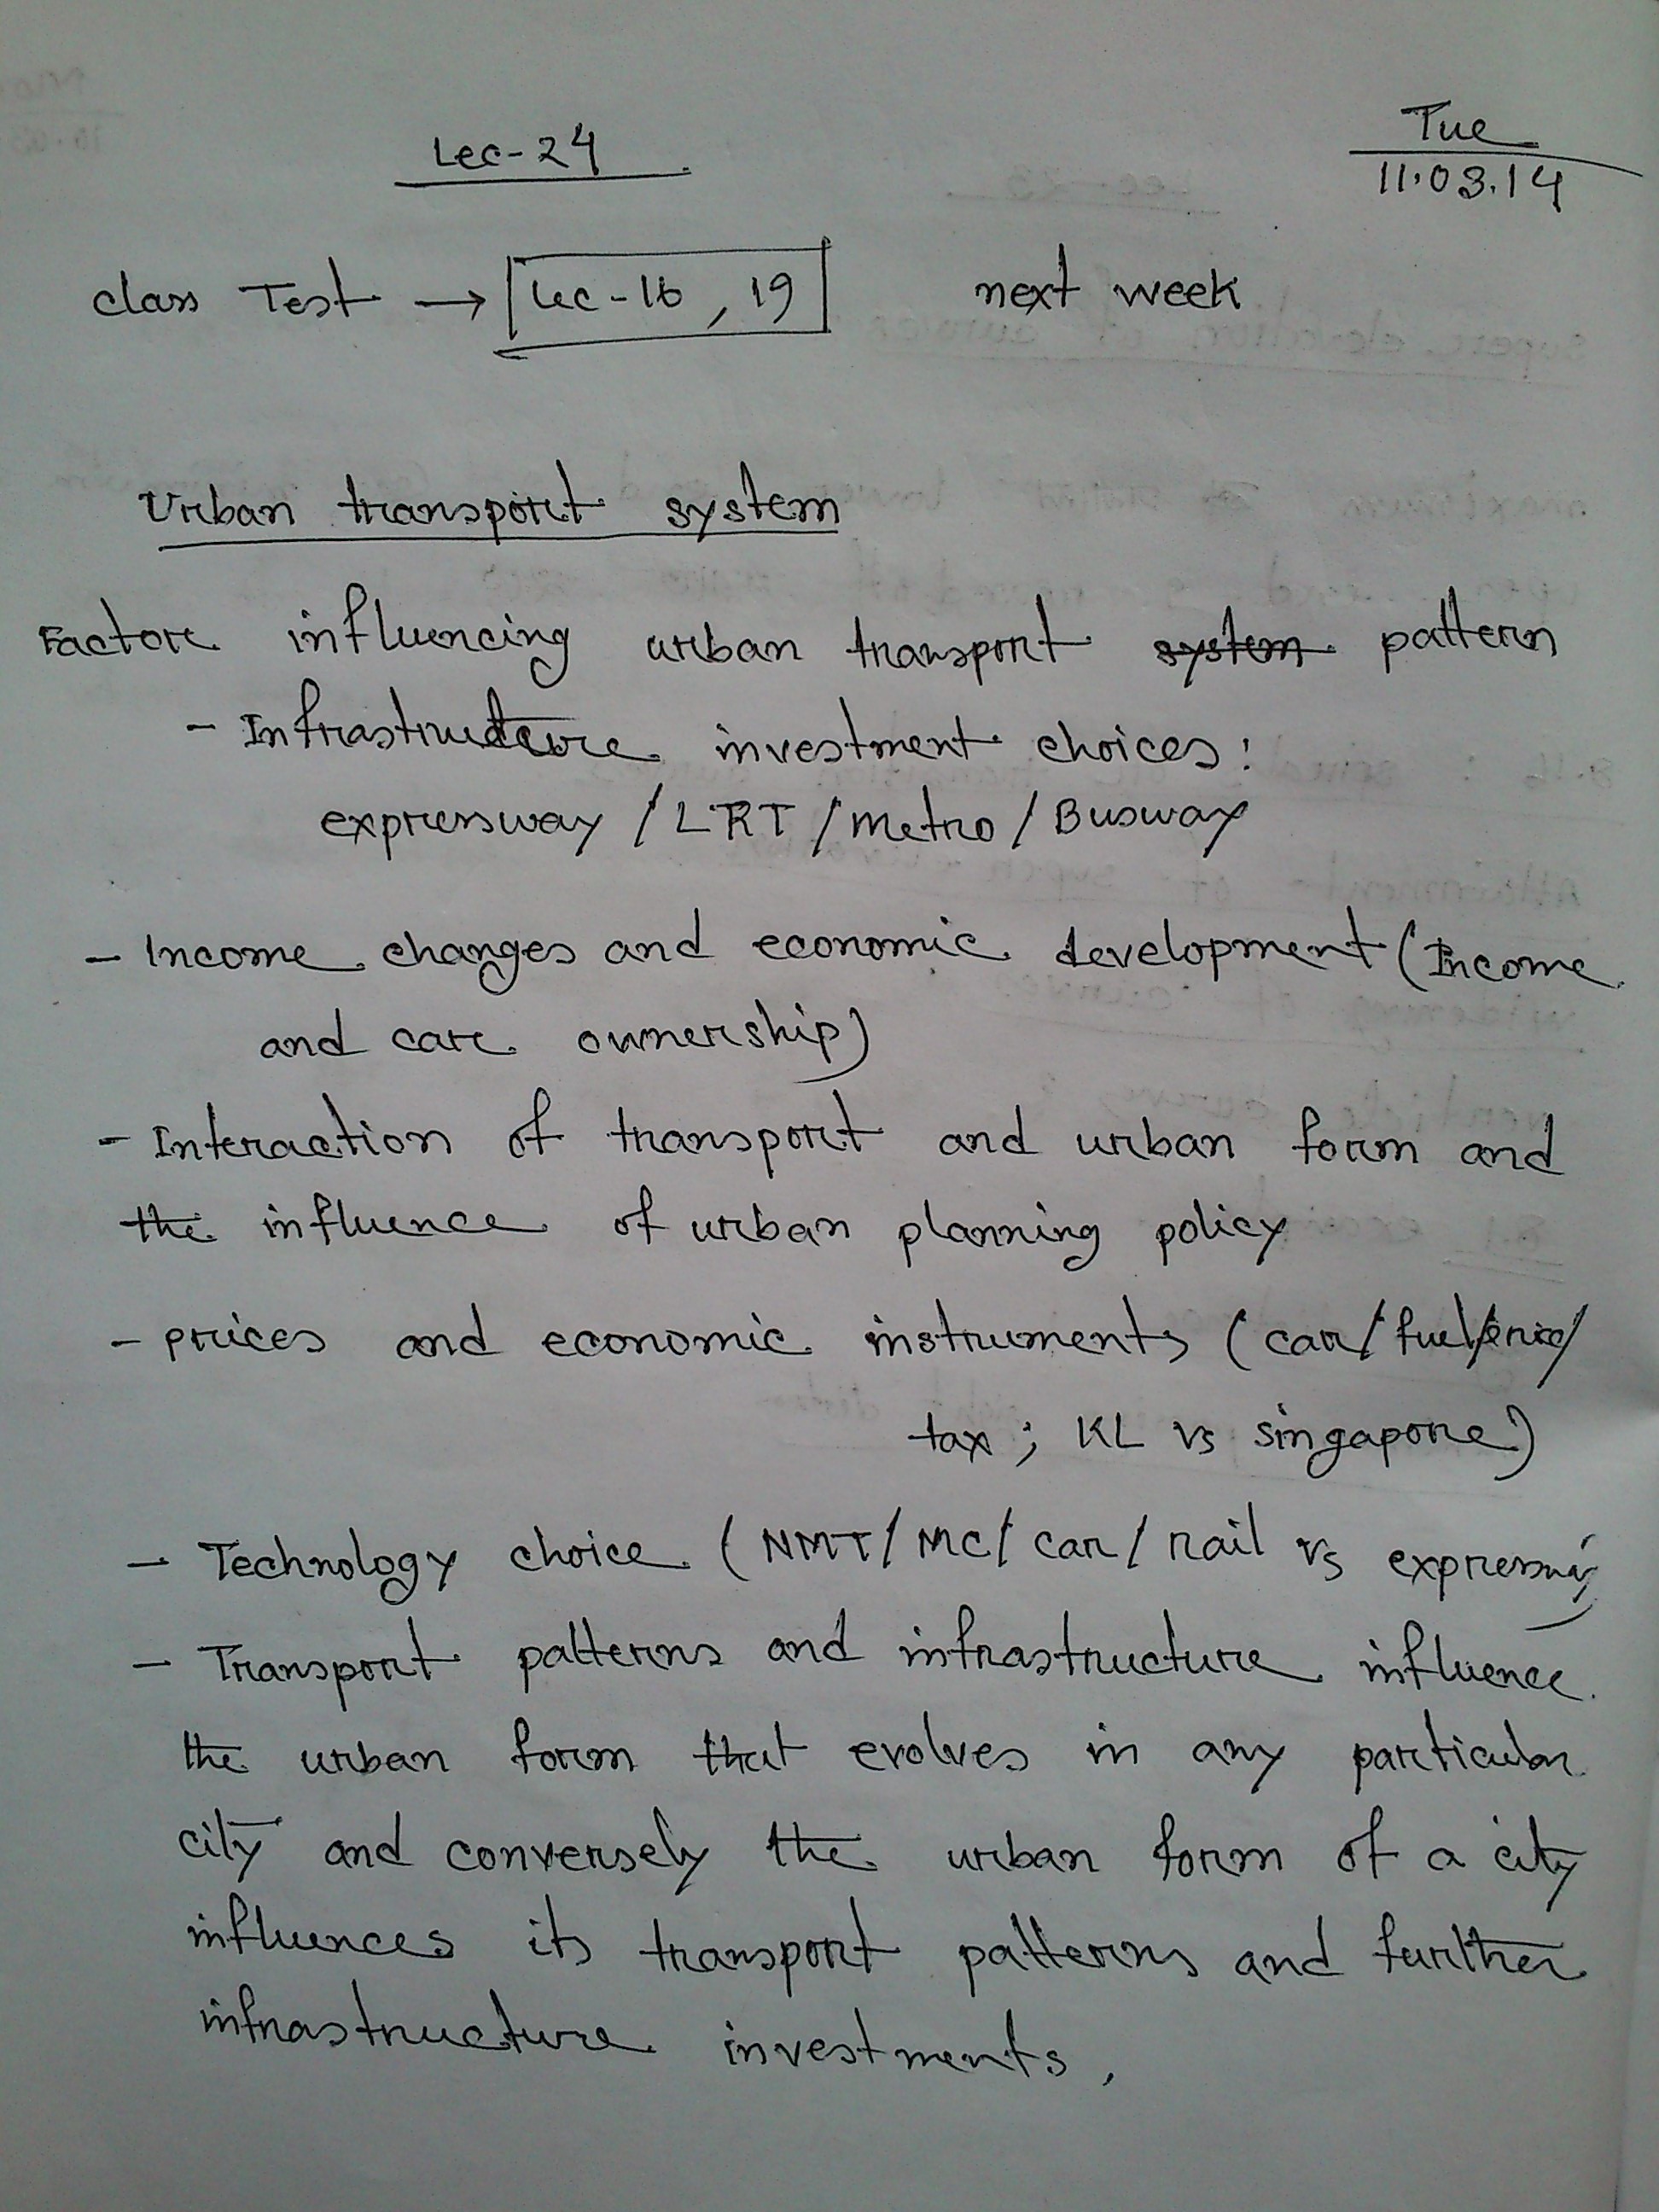 Lec-24
Tue
11.03.14
class Test → Lec-16, 19 next week
Urban transport system
Factor influencing urban transport system pattern
- Infrastructure investment choices:
expressway / LRT / Metro / Busway
- Income changes and economic development (Income
and car ownership)
- Interaction of transport and urban form and
the influence of urban planning policy
- prices and economic instruments (car/fuel/price/
tax; KL vs singapore)
- Technology choice (NMT/ MC/ car/ rail vs expressway)
- Transport patterns and infrastructure influence
the urban form that evolves in any particular
city and conversely the urban form of a city
influences its transport patterns and further
infrastructure investments.